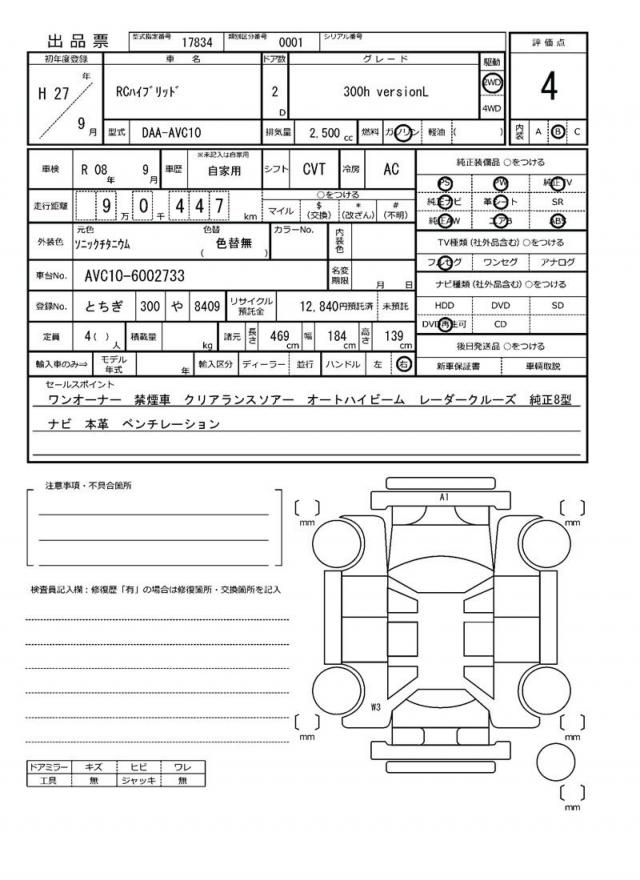 出品票 型式指定番号 17834 類別区分番号 0001 シリアル番号
初年度登録 車名 ドア数 グレード 駆動 評価点
H 27 年 9 月 RCハイブリッド 2 D 300h versionL 2WD 4WD 4
型式 DAA-AVC10 排気量 2,500 cc 燃料 ガソリン 軽油 ( ) 内装 A B C
車検 R 08 年 9 月 車歴 ※未記入は自家用 自家用 シフト CVT 冷房 AC 純正装備品 ○をつける
PS PW 純正TV
走行距離 9 万 0 千 4 4 7 km ○をつける 純正ナビ 革シート SR
マイル $ (交換) * (改ざん) # (不明) 純正AW エアB ABS
外装色 元色 ソニックチタニウム 色替 ( 色替無 ) カラーNo. 内装色 TV種類 (社外品含む) ○をつける
フルセグ ワンセグ アナログ
車台No. AVC10-6002733 名変期限 月 日 ナビ種類 (社外品含む) ○をつける
登録No. とちぎ 300 や 8409 リサイクル預託金 12,840円預託済 未預託 HDD DVD SD
DVD再生可 CD
定員 4( ) 人 積載量 kg 諸元 長さ 469 cm 幅 184 cm 高さ 139 cm 後日発送品 ○をつける
輸入車のみ⇒ モデル年式 年 輸入区分 ディーラー 並行 ハンドル 左 右 新車保証書 車輌取説
セールスポイント
ワンオーナー 禁煙車 クリアランスソアー オートハイビーム レーダークルーズ 純正8型
ナビ 本革 ベンチレーション
注意事項・不具合箇所
A1
mm mm
検査員記入欄:修復歴「有」の場合は修復箇所・交換箇所を記入
W3
mm mm
ドアミラー キズ ヒビ ワレ
工具 無 ジャッキ 無
mm